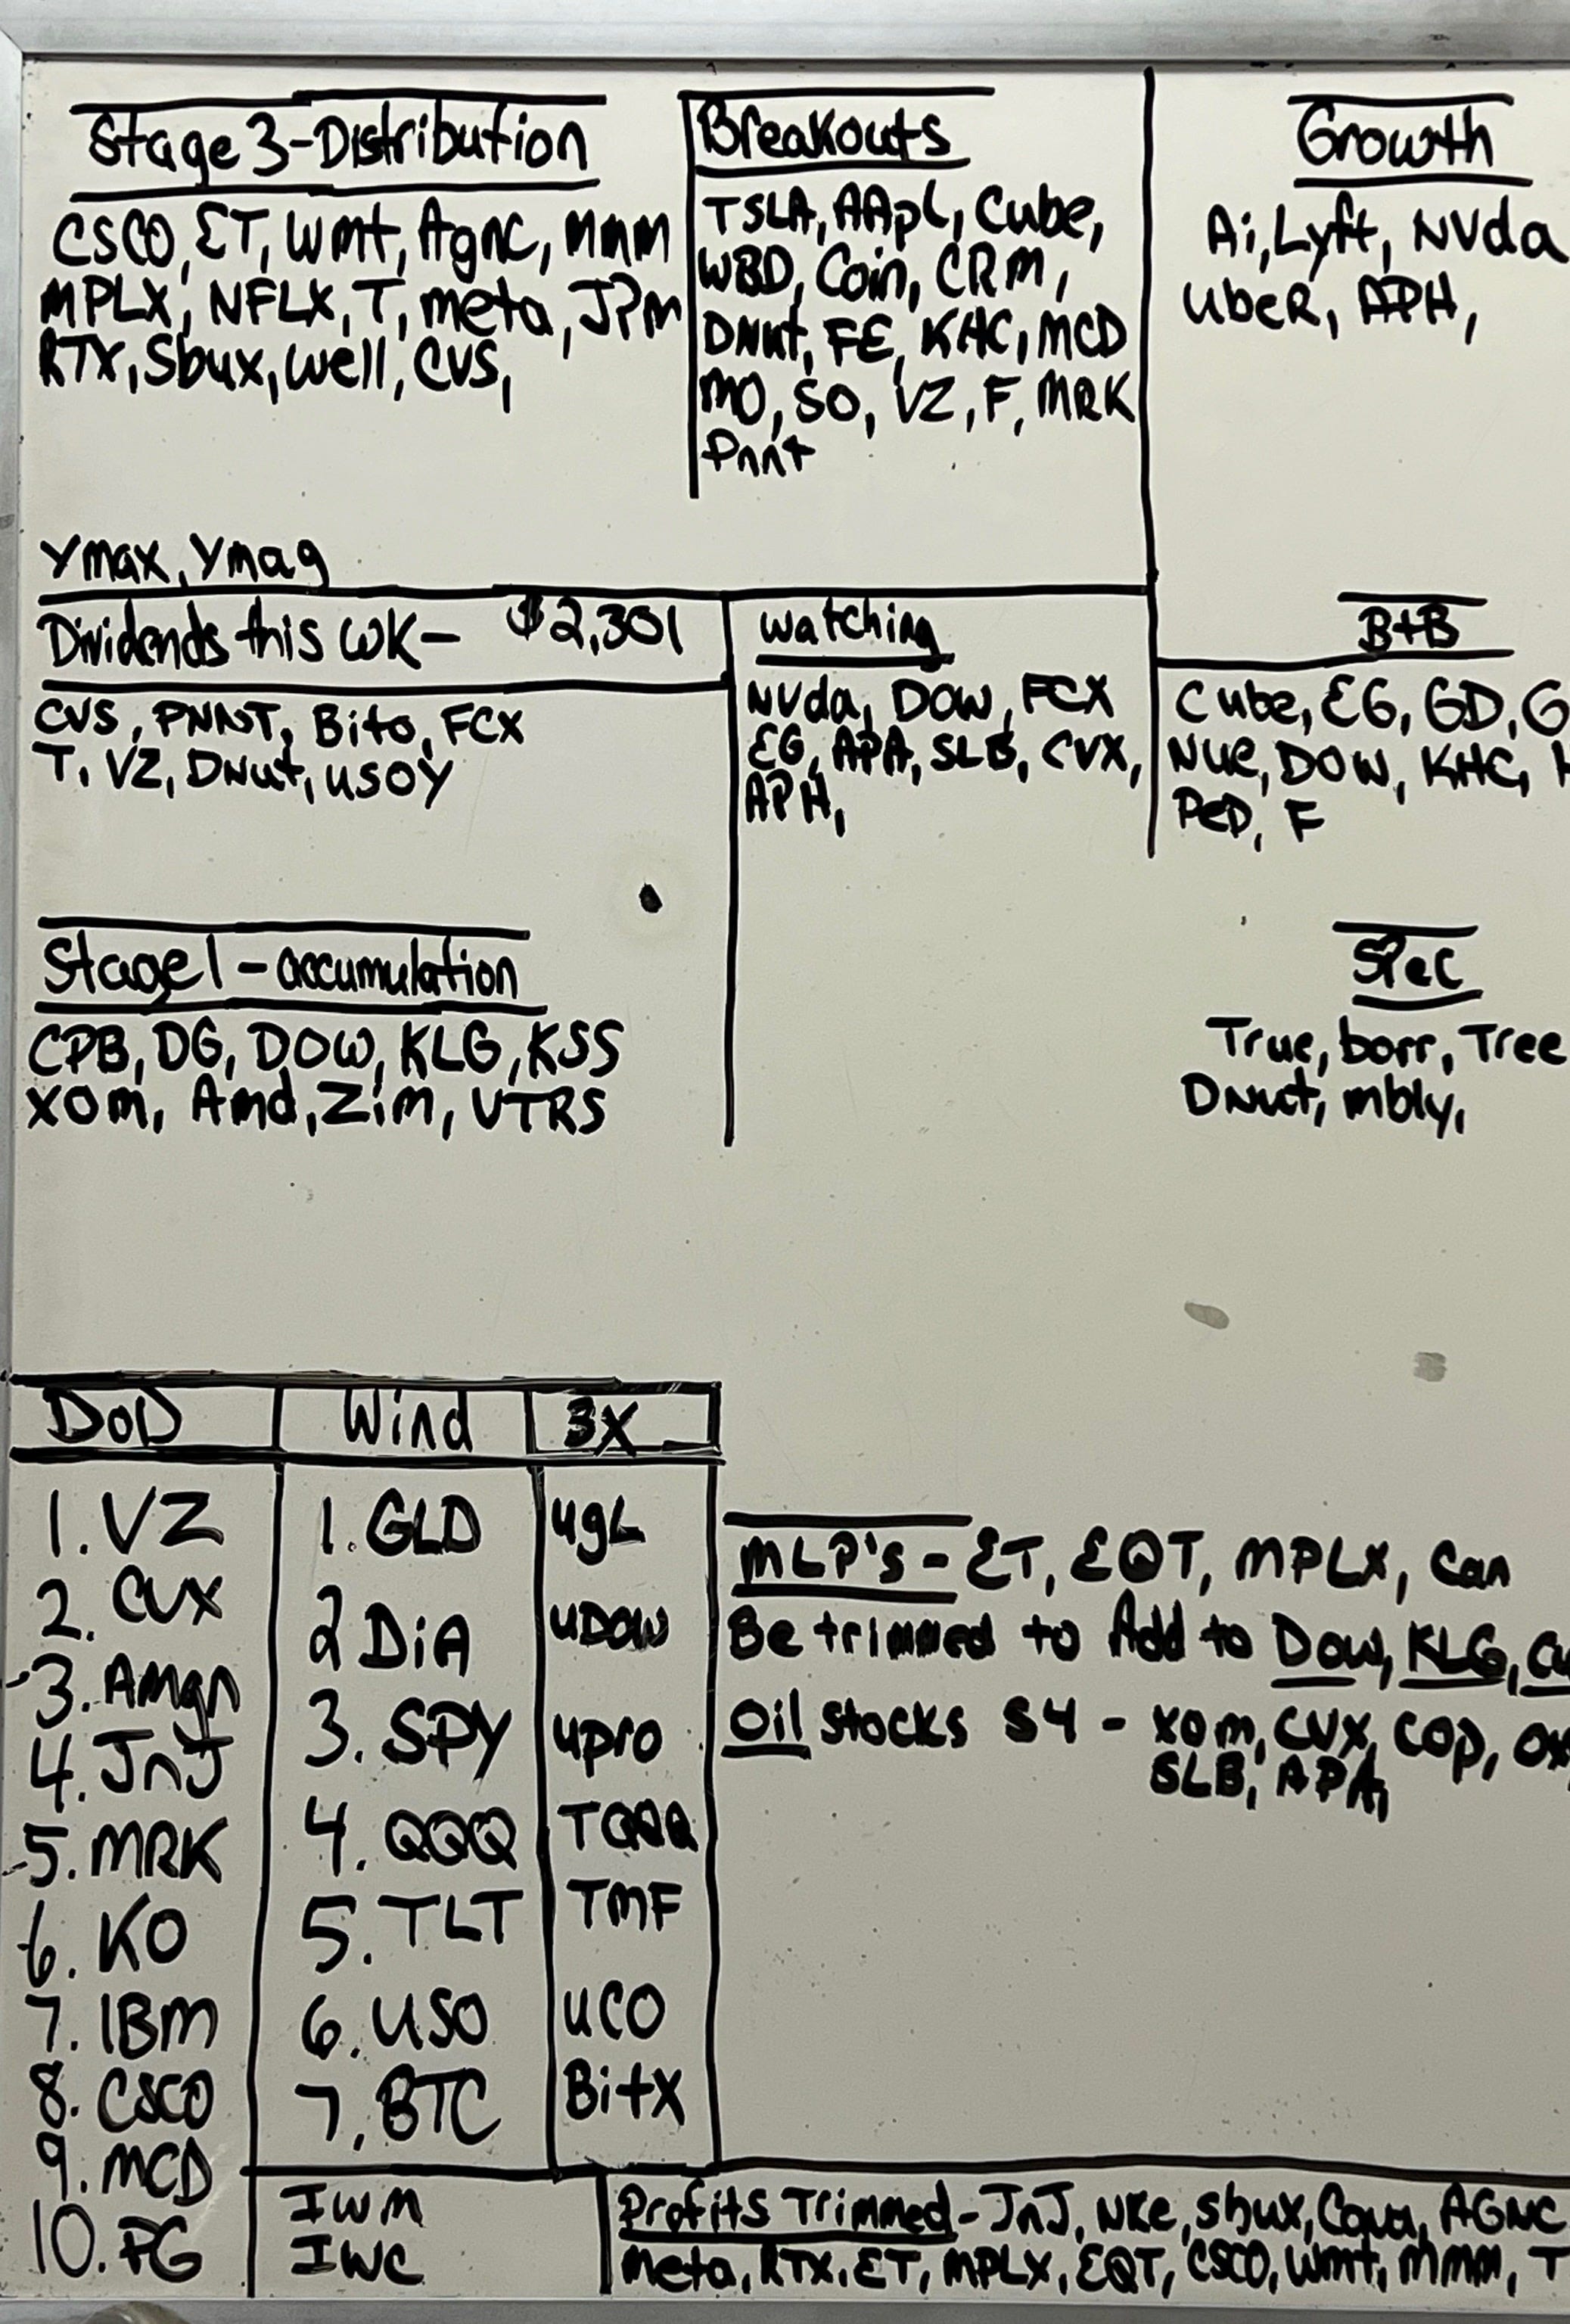 Stage 3-Distribution
CSCO, ET, Wmt, Agnc, mmm
MPLX, NFLX, T, meta, JPm
RTX, Sbux, Well, CVS,
Ymax, Ymag
Breakouts
TSLA, AApL, Cube,
WBD, Coin, CRM,
DNut, FE, KHC, MCD
MO, SO, VZ, F, MRK
Pnnt
Growth
Ai, Lyft, NVda
UbeR, APH,
Dividends this WK- $2,301
CVS, PNNT, Bito, FCX
T, VZ, DNut, USOY
Watching
NVda, DOW, FCX
EG, APA, SLB, CVX,
APH,
B+B
Cube, EG, GD, G
Nue, DOW, KHC, H
PeD, F
Stage 1 - accumulation
CPB, DG, DOW, KLG, KSS
XOm, Amd, Zim, VTRS
SPec
True, borr, Tree
DNut, mbly,
DoD
1. VZ
2. CVX
3. AMgn
4. JnJ
5. MRK
6. KO
7. IBm
8. CSCO
9. MCD
10. PG
Wind
1. GLD
2 DiA
3. SPY
4. QQQ
5. TLT
6. USO
7. BTC
IWM
IWC
3X
ugL
uDow
upro
TQQQ
TMF
UCO
BitX
MLP's - ET, EQT, MPLX, Can
Be trimmed to Add to Dow, KLG,
Oil Stocks S4 - XOm, CVX, COp,
SLB, APA,
Profits Trimmed - JnJ, NKe, sbux, Cava, AGNC
Meta, RTX, ET, MPLX, EQT, CSCO, Wmt, MMM, T